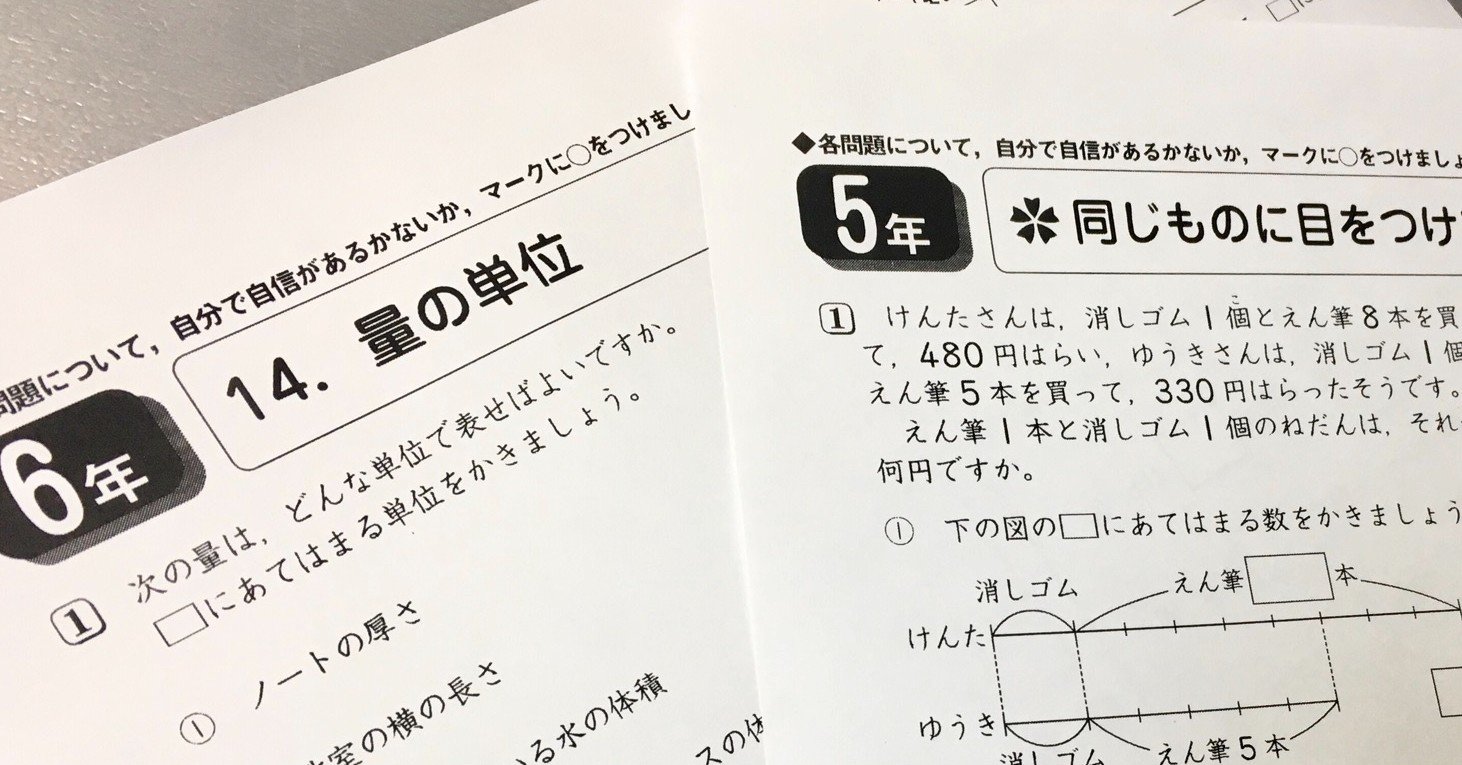 問題について，自分で自信があるかないか，マークに○をつけまし
6年
14. 量の単位
1 次の量は，どんな単位で表せばよいですか。
□にあてはまる単位をかきましょう。
① ノートの厚さ
室の横の長さ
る水の体積
スの体
◆各問題について，自分で自信があるかないか，マークに○をつけましょ
5年
同じものに目をつけ
1 けんたさんは，消しゴム1個とえん筆8本を買
こ
て，480円はらい，ゆうきさんは，消しゴム1個
えん筆5本を買って，330円はらったそうです。
えん筆1本と消しゴム1個のねだんは，それ
何円ですか。
① 下の図の□にあてはまる数をかきましょう
消しゴム えん筆□本
けんた
ゆうき
消しゴム えん筆5本